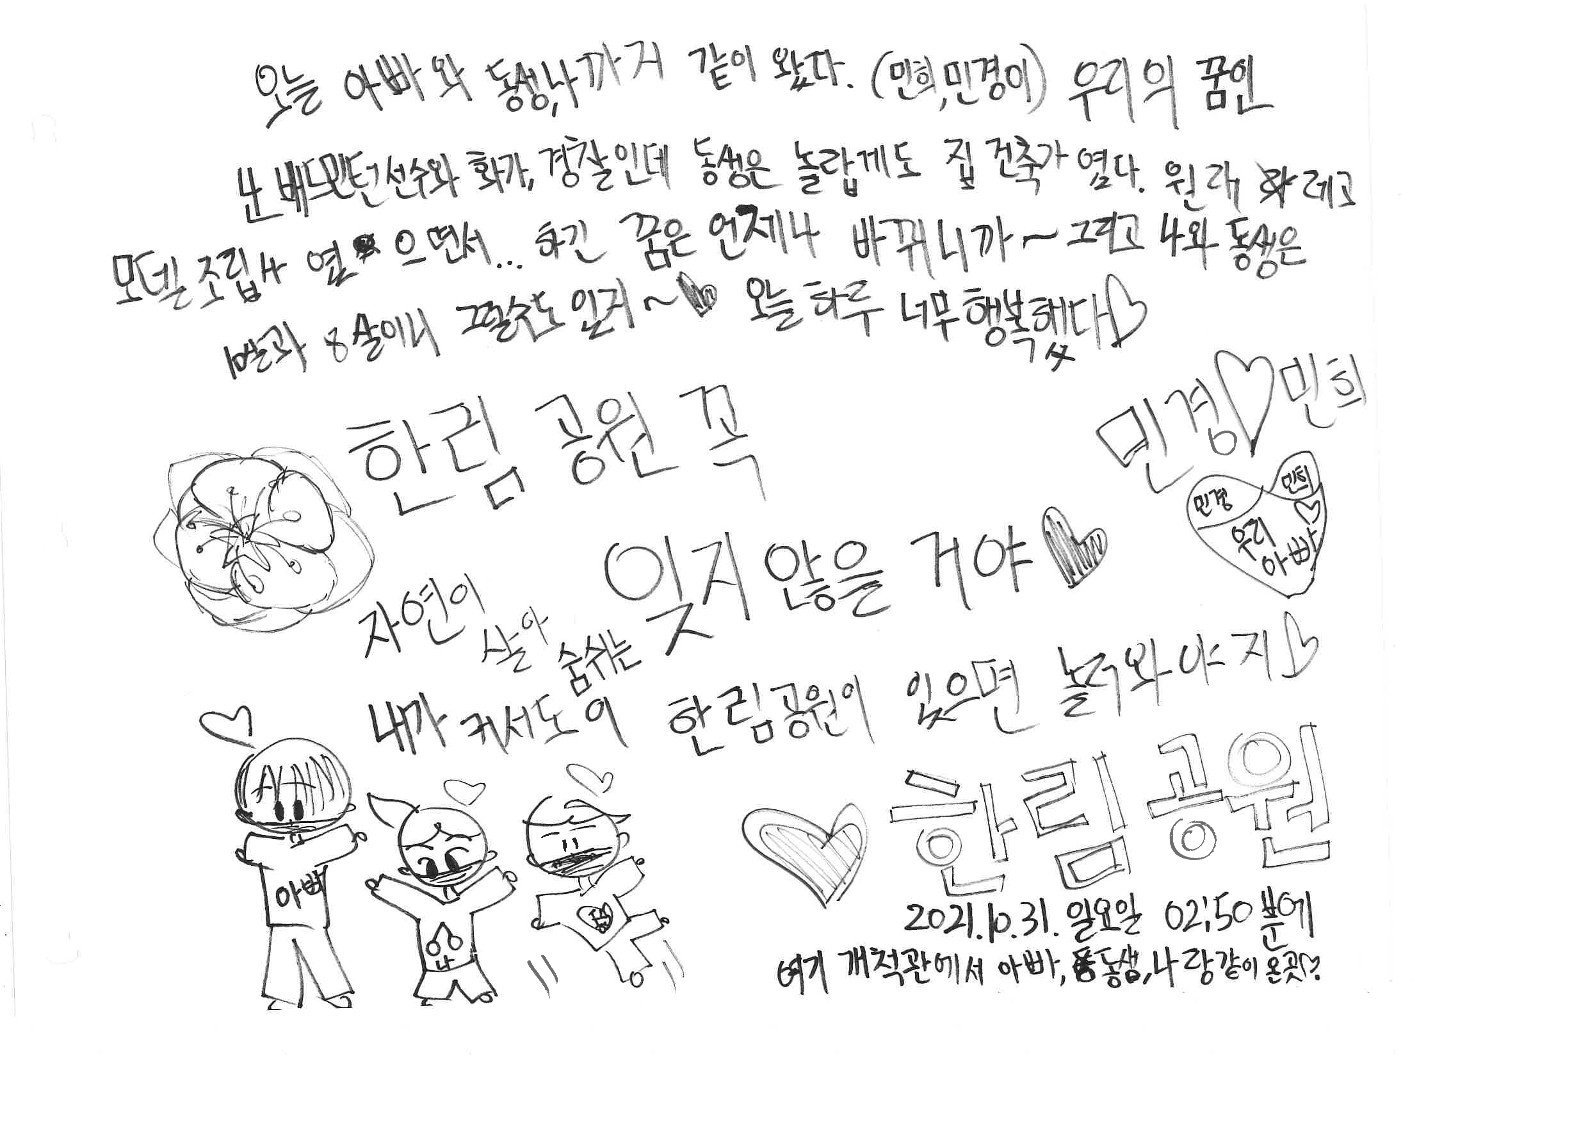 오늘 아빠와 동생,나까지 같이 왔다. (민희,민경이) 우리의 꿈인
난 배드민턴선수와 화가, 경찰인데 동생은 놀랍게도 집 건축가 였다. 원래 레고
모델 조립사 였으면서... 하긴 꿈은 언제나 바뀌니까~ 그리고 나와 동생은
10살과 8살이니 그럴수도 있지~♥ 오늘하루 너무행복했다♡
민경♡민희
한림 공원 꼭
잊지 않을 거야♥
민경 민희
우리♡
아빠
자연이 살아 숨쉬는
내가 커서도 이 한림공원이 있으면 놀러와야지♡
한림공원
아빠
나
2021.10.31. 일요일 02;50분에
여기 개척관에서 아빠, 동생,나랑같이 온곳♡